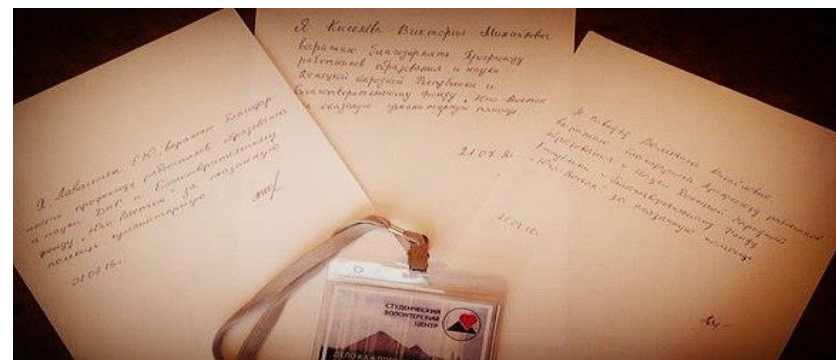 Я, Г.Ю. выражаю благодар-
ность профсоюзу работников образования
и науки ДНР и Благотворительному
фонду „Юго-Восток" за оказанную
помощь гуманитарную.
21.07.16г.
Я Киселёва Виктория Михайловна
выражаю благодарность Профсоюзу
работников образования и науки
Донецкой Народной Республики и
благотворительному фонду „Юго-Восток
за оказанную гуманитарную помощь
21.07
Я Валентина
выражаю благодарность Профсоюзу работников
образования и науки Донецкой Народной
Республики и Благотворительному Фонду
„Юго-Восток" за оказанную помощь
21.07.16.
СТУДЕНЧЕСКИЙ
ВОЛОНТЕРСКИЙ
ЦЕНТР
ДЕЛО КАЖДОГО